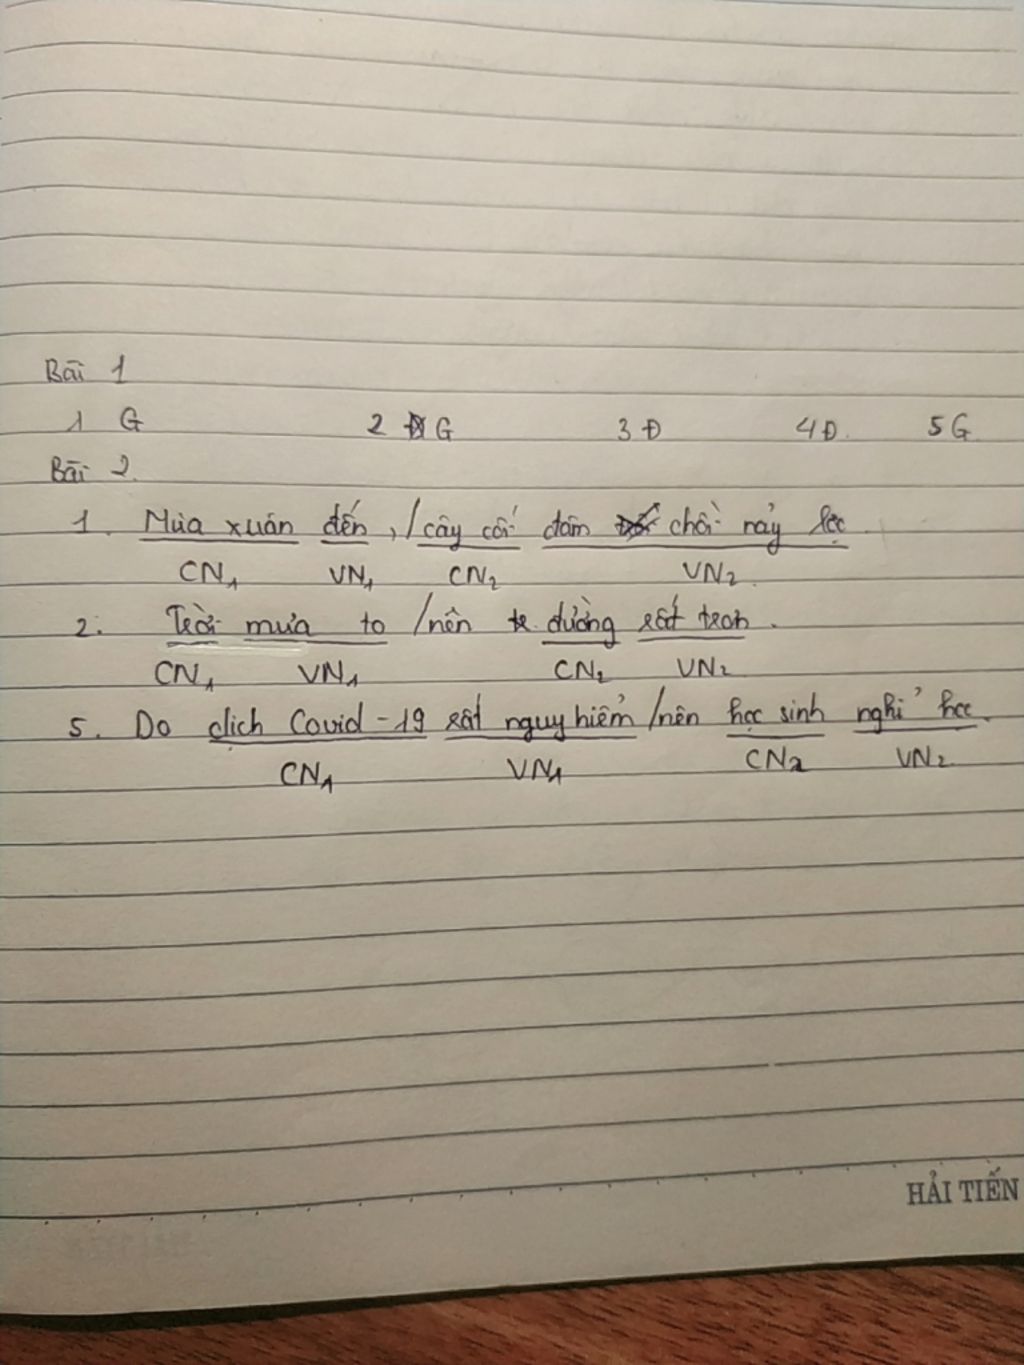 Bài 1
1 G 2 G 3 Đ 4 Đ. 5 G
Bài 2.
1. Mùa xuân đến, / cây cối đâm chồi nảy lộc.
CN₁ VN₁ CN₂ VN₂.
2. Trời mưa to / nên đường rất trơn.
CN₁ VN₁ CN₂ VN₂
5. Do dịch Covid-19 rất nguy hiểm / nên học sinh nghỉ học.
CN₁ VN₁ CN₂ VN₂
HẢI TIẾN